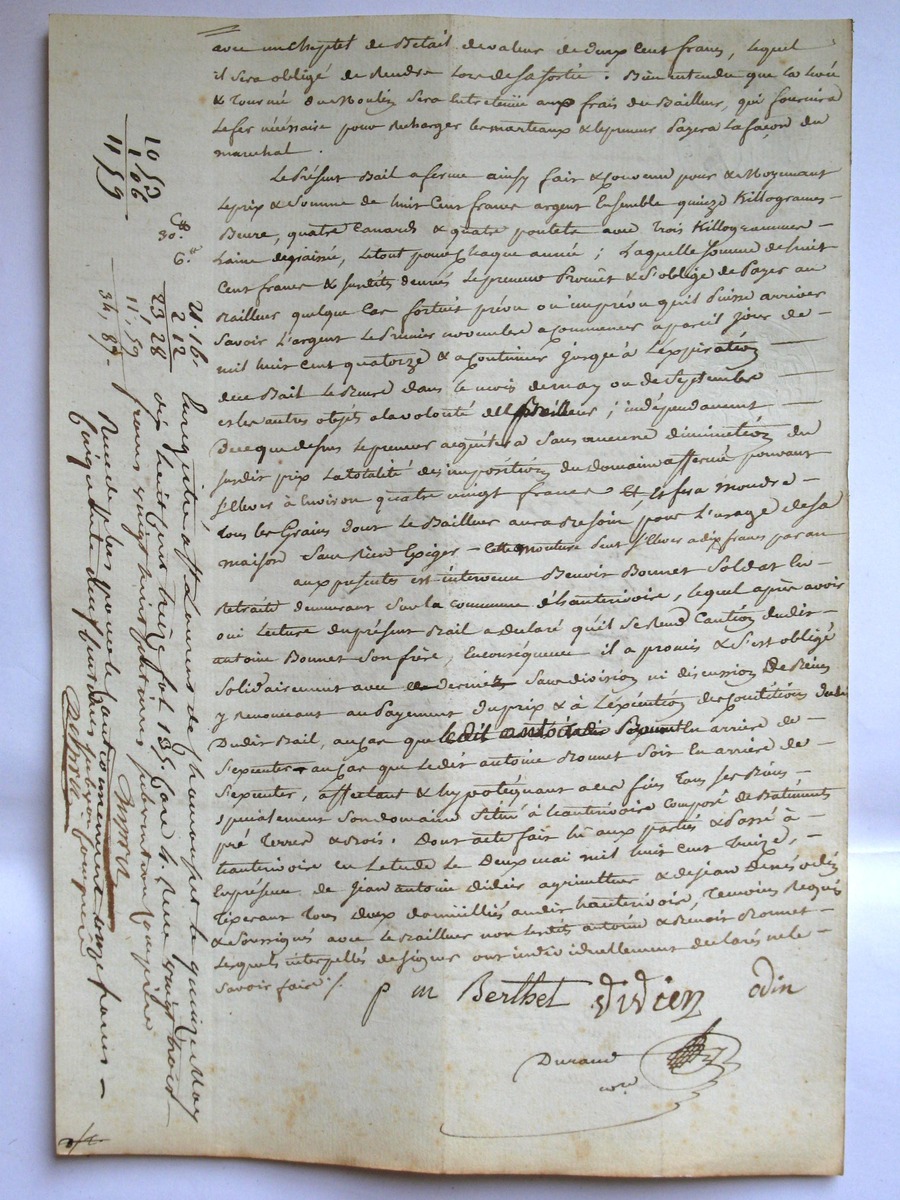 avec un cheptel de Betail de valeur de deux Cent francs, lequel
il Sera obligé de Rendre Lors de sa Sortie. Bien entendu que la roüe
& tourné du Moulin Sera Entretenüe aux frais du Bailleur, qui fournira
Le fer nécessaire pour Recharger les marteaux & le preneur Payera La façon du
marechal.
Le Présent Bail a ferme ainsy fait & convenu pour & Moyenant
Le prix & Somme de huit Cent francs argent Ensemble quinze Killogrames
Beure, quatre Canards & quatre poulets avec trois Killogrammes
Laine degraissé, Le tout pour Chaque année; Laquelle Somme de huit
Cent francs & Susdits denrés Le preneur Promet & S'oblige de Payer au
Bailleur quelque Cas fortuit prévu ou imprévu qu'il Puisse arriver
Savoir L'argent Le Premier novembre a Commencer a pareil Jour de
mil huit Cent quatorze & a Continuer jusqu'à L'expiration
du Bail Le Beure dans le mois de may ou de Septembre
et les autres objets a la volonté du Bailleur; indépendament
De ce que dessus Le preneur acquitera Sans aucune diminution du
Susdit prix La totalité des impositions du domaine affermé pouvant
S'Elever à Environ quatre vingt francs Et fera moudre
tous les Grains dont Le Bailleur aura Besoin pour L'usage de Sa
maison Sans Rien Exiger Cette mouture peut S'Elever a dix francs par an
aux présentes est intervenu Benoit Bonnet Soldat En
Retraite demeurant Sur la commune d'hauterivoire, lequel après avoir
oui Lecture du présent Bail a déclaré qu'il Se Rend Caution dudit
antoine Bonnet Son frère, En conséquence il a promis & S'est obligé
Solidairement avec ce dernier Sans division ni discussion De Biens
y Renoncant au Payement du prix & à L'exécution des conditions
Dudit Bail, au cas que ledit antoine En arriere de
S'exécuter au cas que Ledit antoine Bonnet Soit En arriere de
S'exécuter, affectant & hypotéquant a ces fins tous Ses Biens
Spécialement Son domaine Situé à hauterivoire composé de Batiments
pré terres & Bois. Dont acte fait Lu aux parties & Passé à
hauterivoire en L'etude Le Deux mai mil huit Cent treize,
En présence de Jean antoine didier agriculteur & de Jean Denis odin
tixerant tous deux domiciliés audit hauterivoire, temoins Requis
& Soussignés avec Le Bailleur non Lesdits antoine & Benoit Bonnet
Lesquels interpellés de Signer ont individuellement déclarés ne Le
Savoir faire /.
p m Berthet didier odin
Durand
nre
21.16.
2 12
23 28
11,59
34,87
10 53
1,06
11 59
Enregistré a St Laurent de Chamousset le quinze May
dix huit cent treize fol 135 Case 4. Reçu vingt trois
francs vingt huit centimes subvention comprise
Reçu de plus pour le cautionnement onze francs
Cinquante neuf centimes subvention comprise